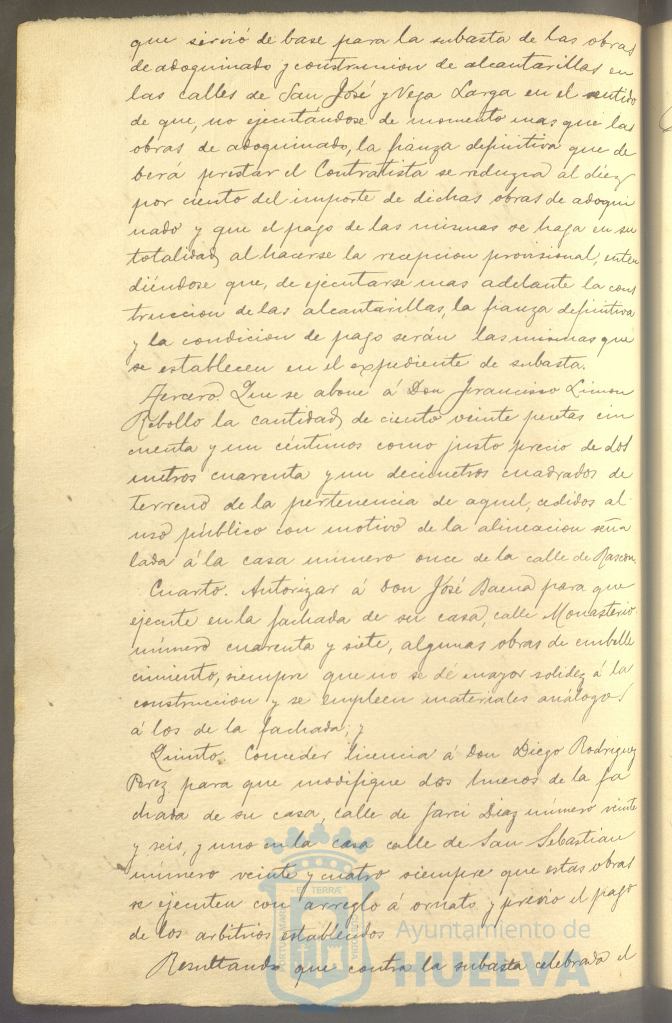 que sirvió de base para la subasta de las obras
de adoquinado y construccion de alcantarillas en
las calles de San José y Vega Larga en el sentido
de que, no ejecutándose de momento mas que las
obras de adoquinado, la fianza definitiva que de
berá prestar el Contratista se reduzca al diez
por ciento del importe de dichas obras de adoqui
nado y que el pago de las mismas se haga en su
totalidad al hacerse la recepcion provisional, enten
diéndose que, de ejecutarse mas adelante la cons
truccion de las alcantarillas, la fianza definitiva
y la condicion de pago serán las mismas que
se establecen en el expediente de subasta.
Tercero. Que se abone á Don Francisco Limon
Rebollo la cantidad de ciento veinte pesetas cin
cuenta y un céntimos como justo precio de dos
metros cuarenta y un decimetros cuadrados de
terreno de la pertenencia de aquel, cedidos al
uso público con motivo de la alineacion seña
lada á la casa número once de la calle de Rascon.
Cuarto. Autorizar á Don José Baena para que
ejecute en la fachada de su casa, calle Monasterio
número cuarenta y siete, algunas obras de embelle
cimiento, siempre que no se dé mayor solidez á la
construccion y se empleen materiales análogos
á los de la fachada; y
Quinto. Conceder licencia á Don Diego Rodriguez
Perez para que modifique dos huecos de la fa
chada de su casa, calle de Garci Diaz número veinte
y seis, y uno en la casa calle de San Sebastian
número veinte y cuatro siempre que estas obras
se ejecuten con arreglo á ornato y previo el pago
de los arbitrios establecidos
Resultando que contra la subasta celebrada el
Ayuntamiento de
HUELVA